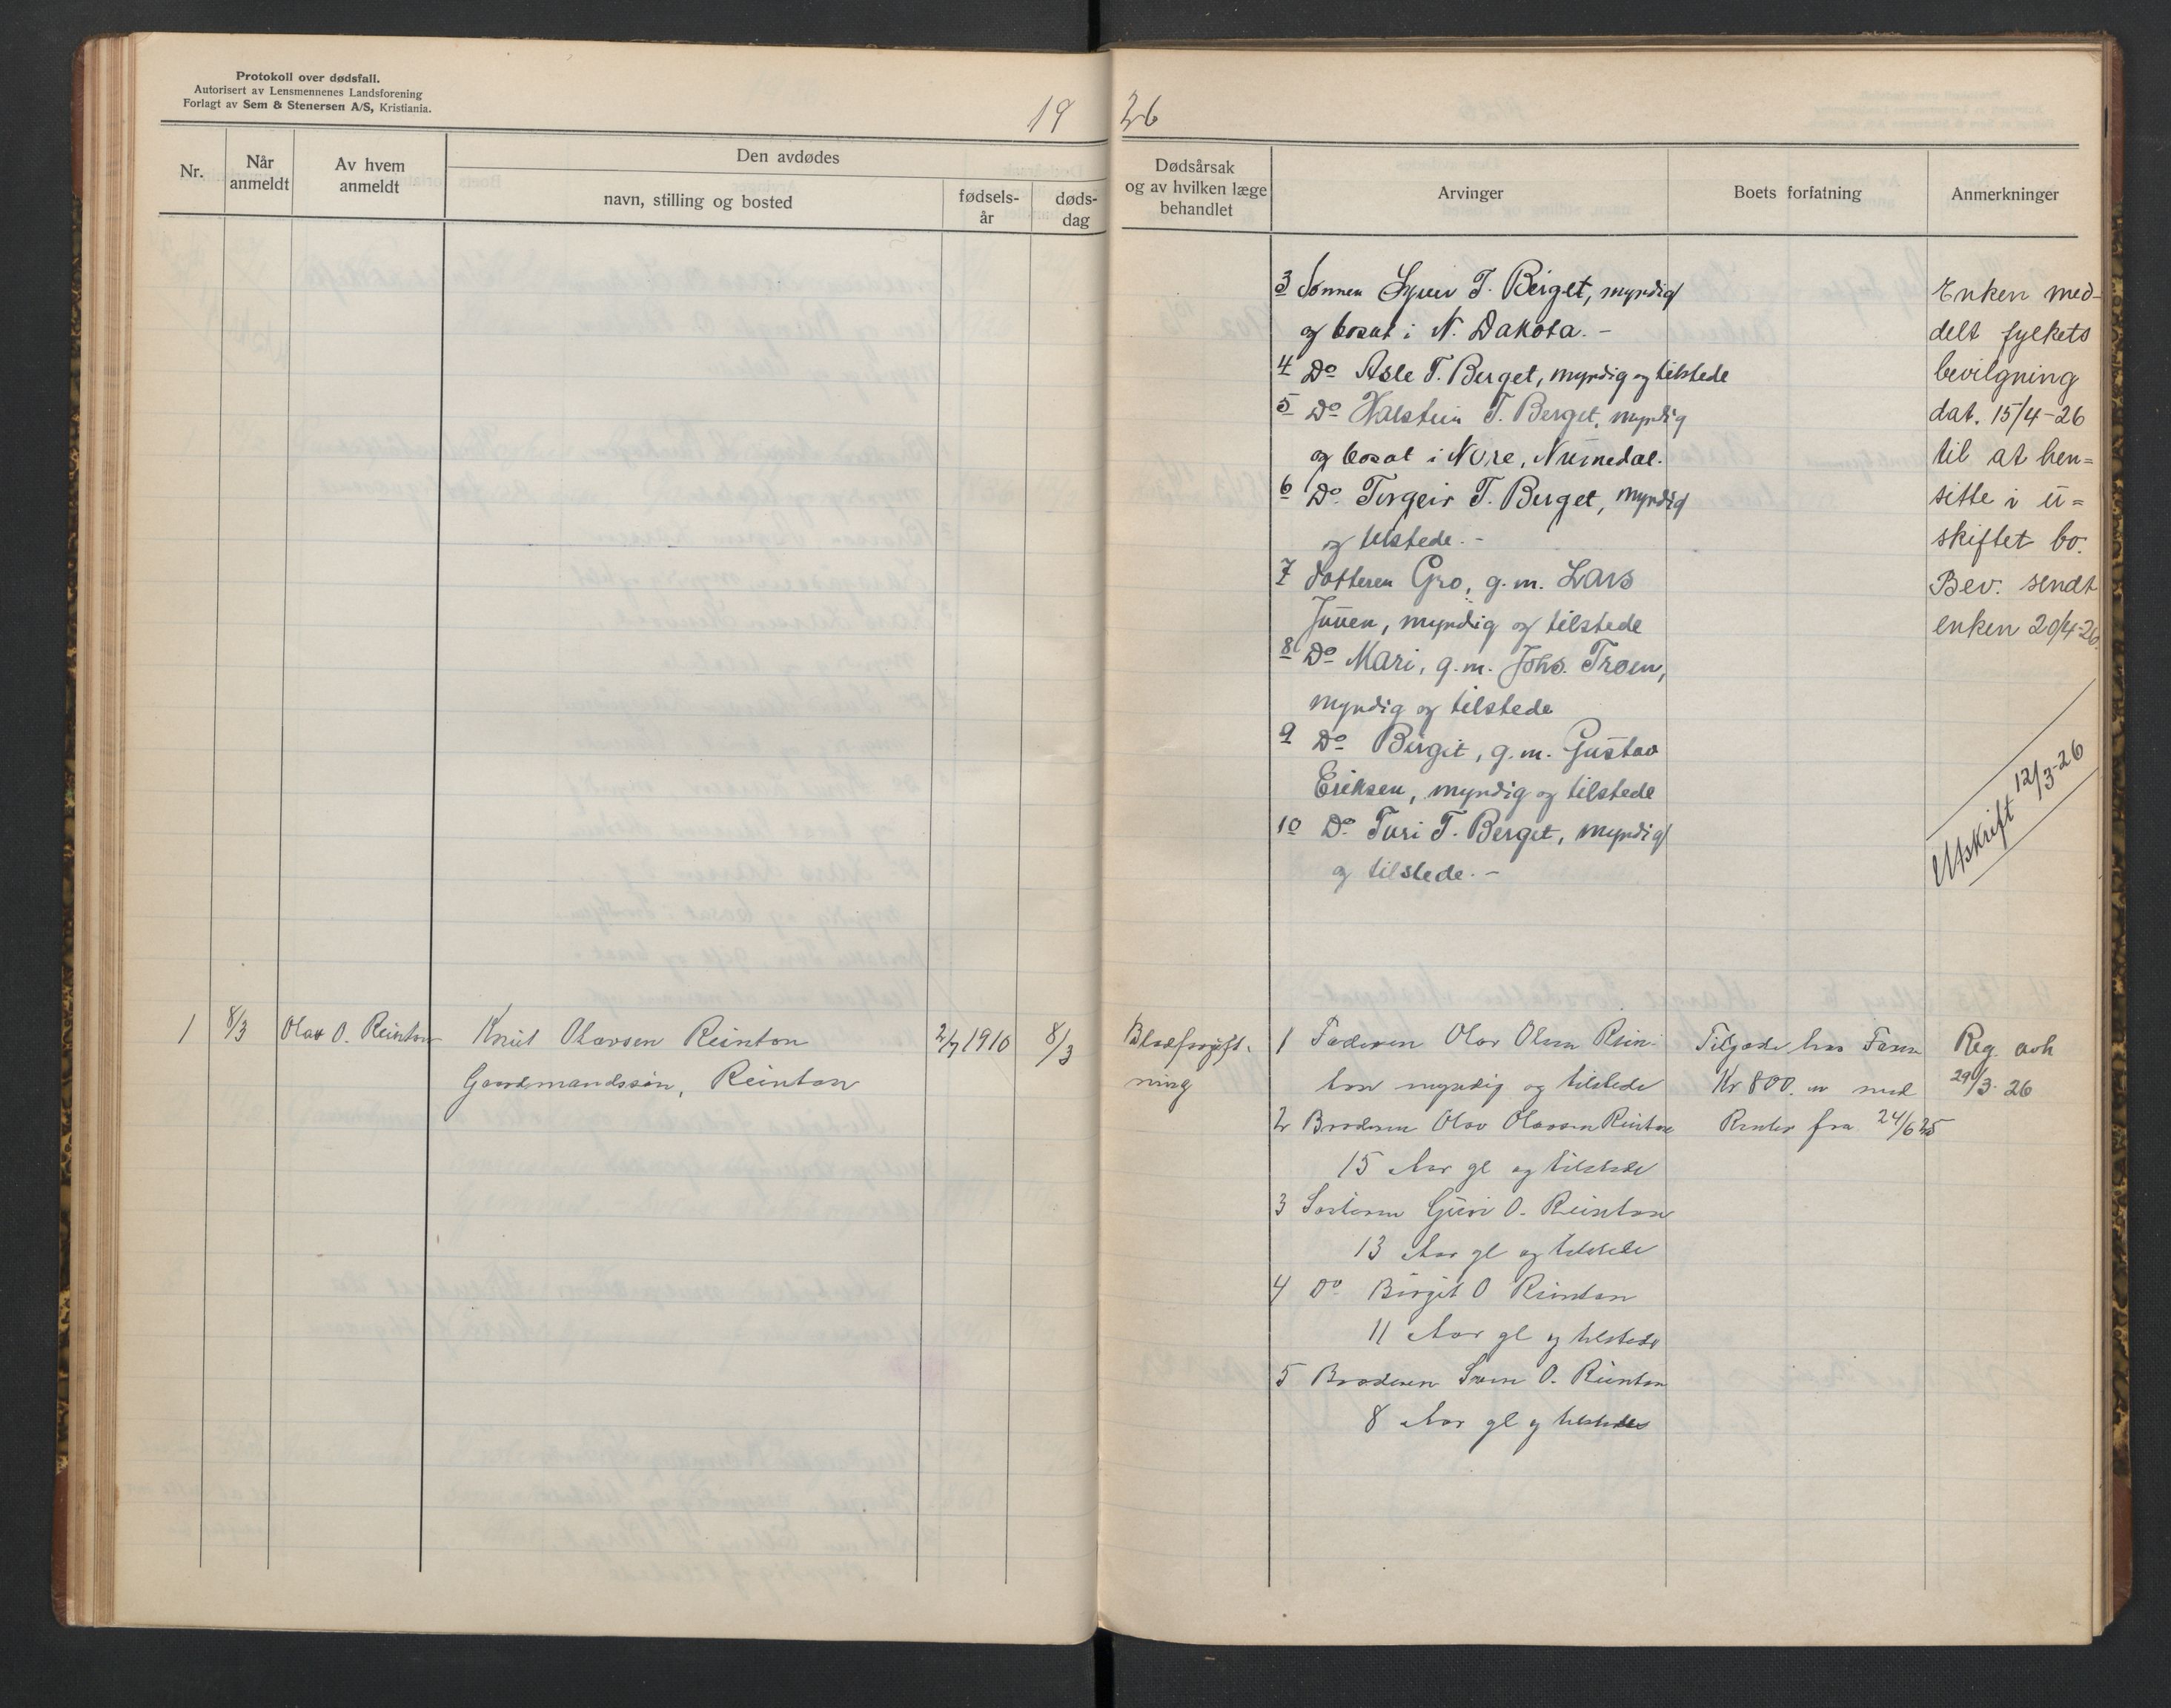 Protokoll over dødsfall.
Autorisert av Lensmennenes Landsforening
Forlagt av Sem & Stenersen A/S, Kristiania.
19 26
Nr.
Når anmeldt
Av hvem anmeldt
Den avdødes
navn, stilling og bosted
fødsels-
år
døds-
dag
Dødsårsak
og av hvilken læge
behandlet
Arvinger
Boets forfatning
Anmerkninger
3 Sønnen Syver T. Berget, myndig
og bosat i N. Dakota. -
4 Do Asle T. Berget, myndig og tilstede
5 Do Halstein T. Berget, myndig
og bosat i Nore, Numedal.
6 Do Torgeir T. Berget, myndig
og tilstede. -
7 Datteren Gro, g.m. Lars
Juven, myndig og tilstede
8 Do Mari, g.m. Johs. Troen,
myndig og tilstede
9 Do Birgit, g.m. Gustav
Eriksen, myndig og tilstede
10 Do Turi T. Berget, myndig
og tilstede. -
Enken med-
delt fylkets
bevilgning
dat. 15/4-26
til at hen=
sitte i u=
skiftet bo.
Bev. sendt
enken 20/4-26.
Utskrift 12/3-26
1
8/3
Olav O. Reinton
Knut Olavsen Reinton
Gaardmandssøn, Reinton
2/7 1910
8/3
Blodforgift-
ning
1 Faderen Olav Olsen Rein-
ton myndig og tilstede
2 Broderen Olav Olavsen Reinton
15 Aar gl og tilstede
3 Søsteren Guri O. Reinton
13 Aar gl og tilstede
4 Do Birgit O Reinton
11 Aar gl og tilstede
5 Broderen Sven O. Reinton
8 Aar gl og tilstede
Tilgode hos Faren
Kr 800. med
Renter fra 24/6 25
Reg. avh
29/3-26